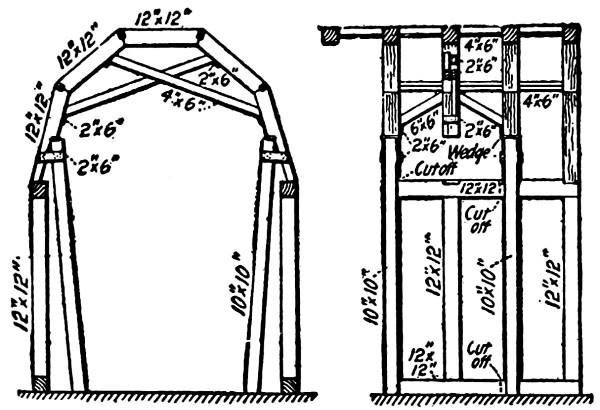 12"x12"
12"x12"
12"x12"
2"x6"
4"x6"
2"x6"
2"x6"
12"x12"
10"x10"
4"x6"
2"x6"
4"x6"
6"x6"
2"x6"
2"x6"
Wedge
Cut off
12"x12"
Cut
off
10"x10"
12"x12"
10"x10"
12"x12"
12"x
12"
Cut
off